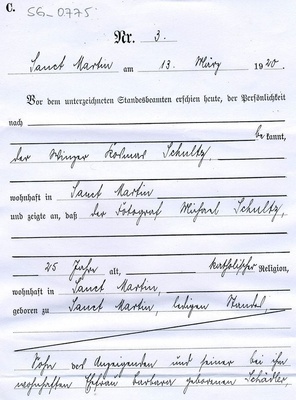 C. SG-0775
Nr. 3.
Sanct Martin am 13. März 1920.
Vor dem unterzeichneten Standesbeamten erschien heute, der Persönlichkeit
nach
bekannt,
der Winzer Schultz,
wohnhaft in Sanct Martin
und zeigte an, daß der Fotograf Michael Schultz,
25 Jahre alt, katholischer Religion,
wohnhaft in Sanct Martin,
geboren zu Sanct Martin, ledigen Standes,
Sohn des Anzeigenden und seiner bei ihm
wohnhaften Ehefrau Barbara geborenen Schädler,